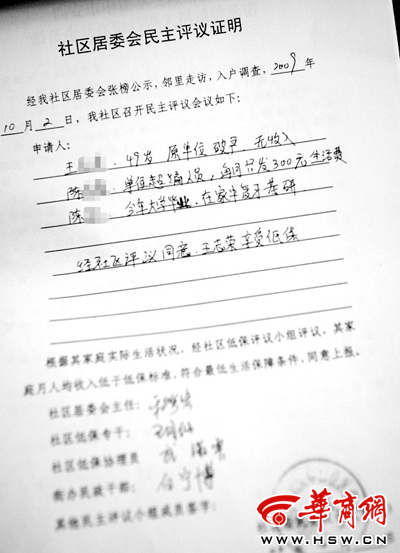 社区居委会民主评议证明
经我社区居委会张榜公示，邻里走访，入户调查，2009年
10月2日，我社区召开民主评议会议如下：
申请人：
王 49岁 原单位破产，无收入
陈 单位超编人员，每月只发300元生活费
陈 今年大学毕业，在家中复习考研
经社区评议同意，王志荣享受低保
根据其家庭实际生活状况，经社区低保评议小组评议，其家
庭月人均收入低于低保标准，符合最低生活保障条件，同意上报。
社区居委会主任：
社区低保专干：
社区低保协理员
街办民政干部：
其他民主评议小组成员签字：
华商网
WWW.HSW.CN